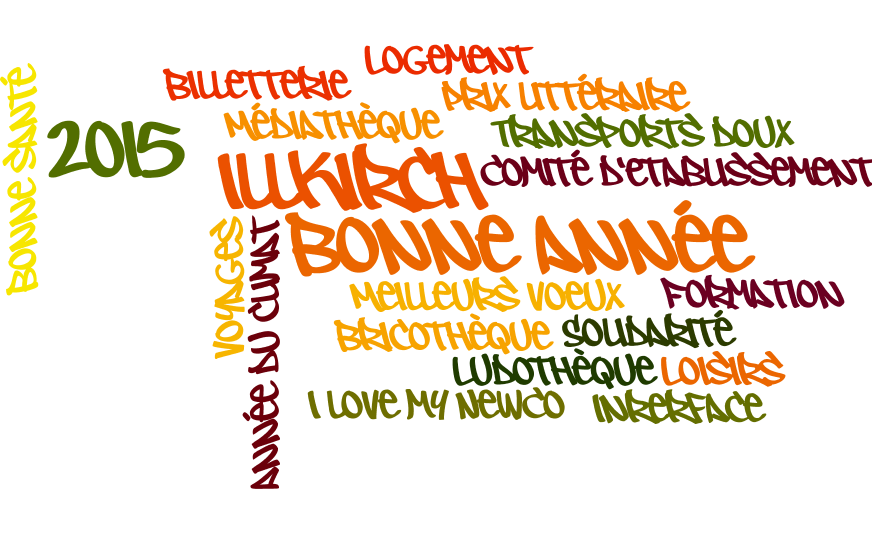 LOGEMENT
BILLETTERIE
PRIX LITTÉRAIRE
MÉDIATHÈQUE
TRANSPORTS DOUX
BONNE SANTÉ
2015
ILLKIRCH
COMITÉ D'ETABLISSEMENT
BONNE ANNÉE
VOYAGES
ANNÉE DU CLIMAT
MEILLEURS VOEUX
FORMATION
BRICOTHÈQUE
SOLIDARITÉ
LUDOTHÈQUE
LOISIRS
I LOVE MY NEWCO
INRERFACE